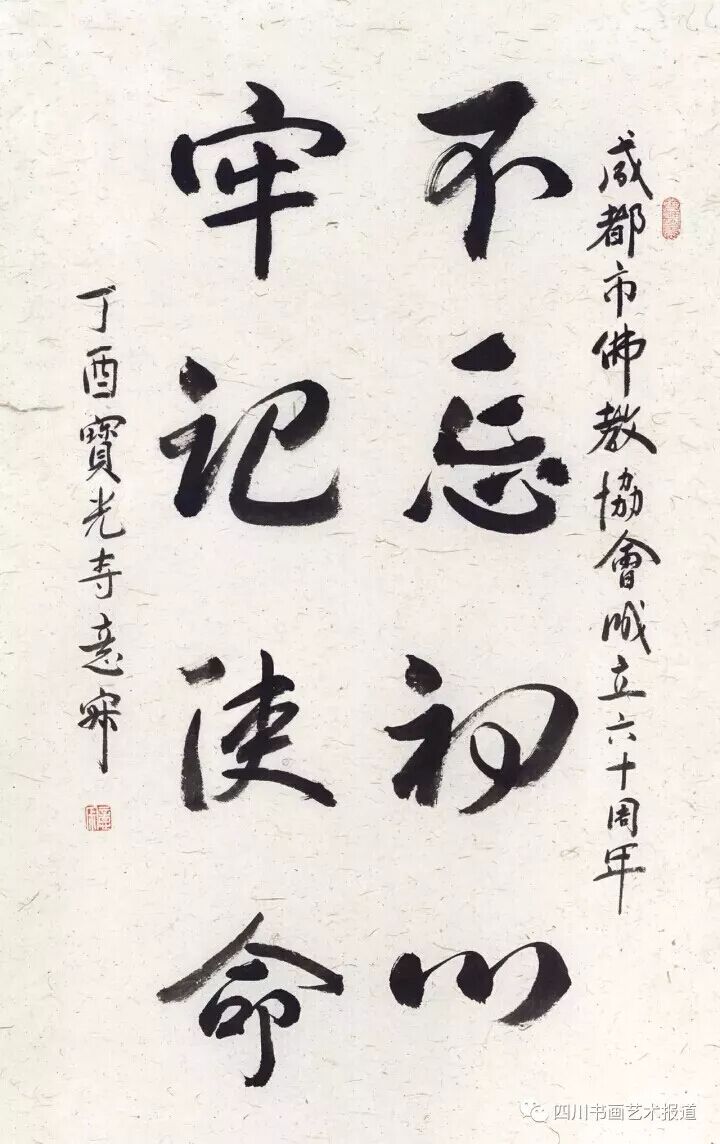 成都市佛教協會成立六十周年
不忘初心
牢记使命
丁酉寶光寺意寂
四川书画艺术报道